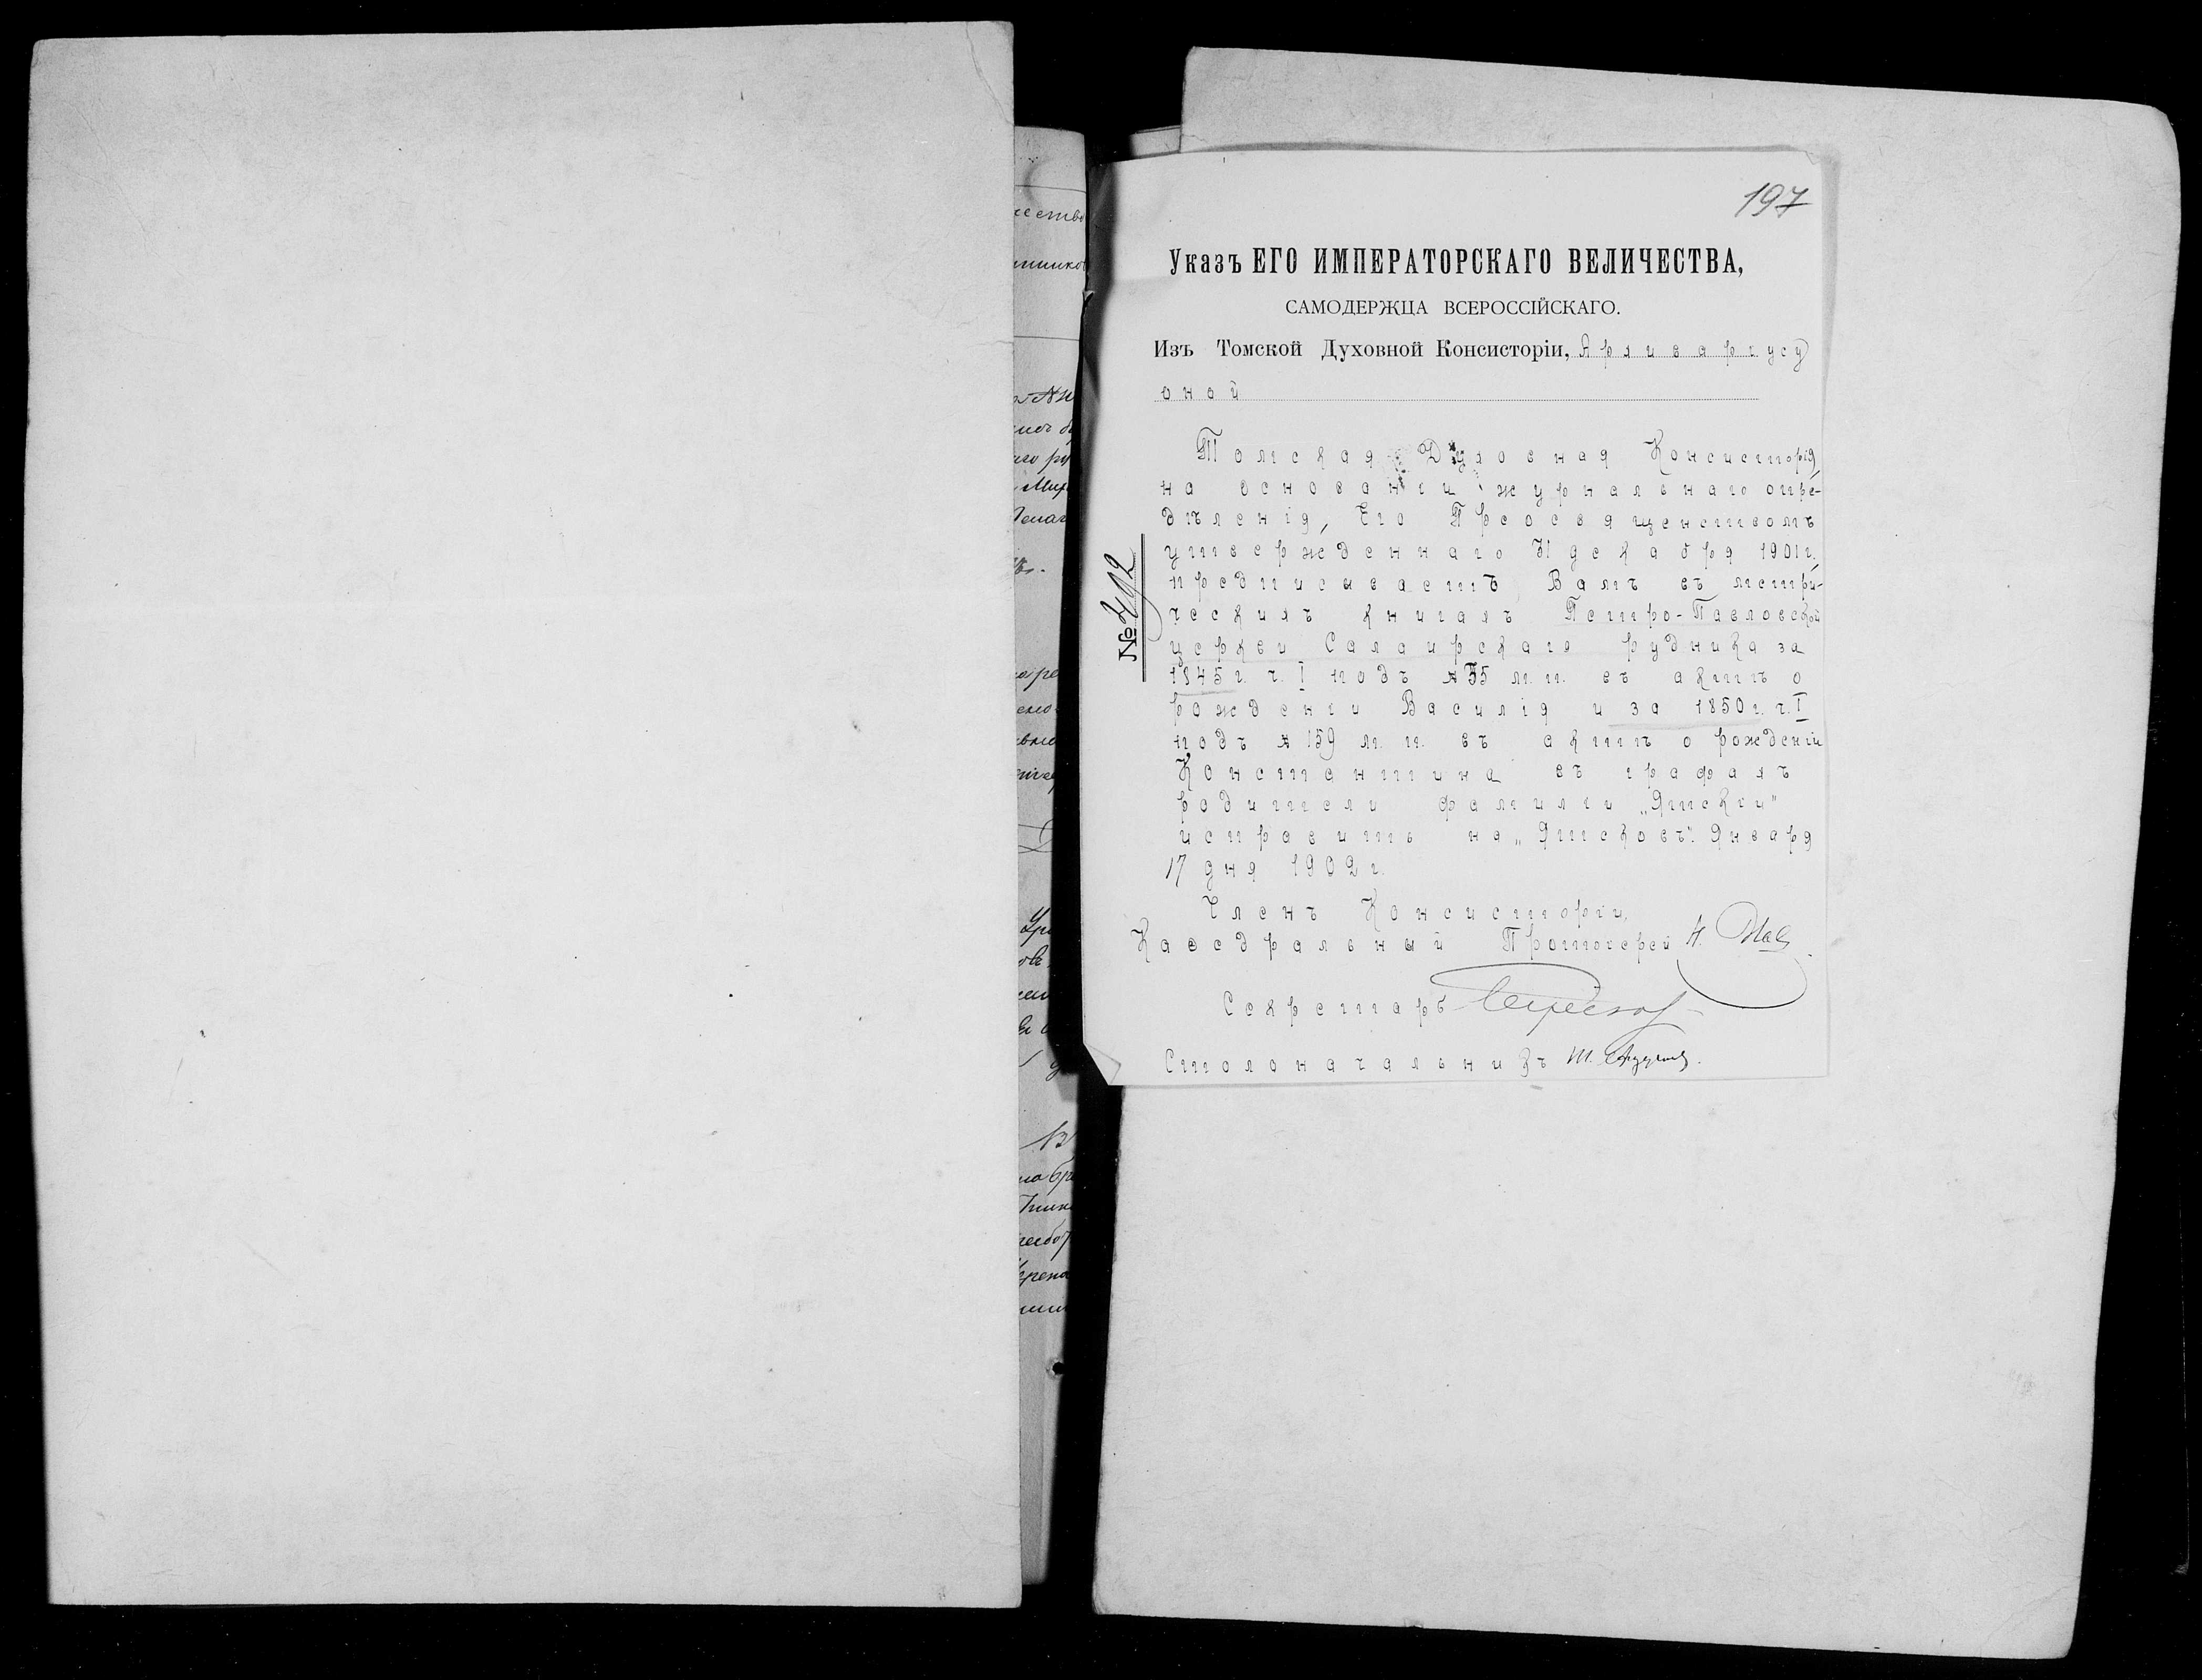 197
Указъ ЕГО ИМПЕРАТОРСКАГО ВЕЛИЧЕСТВА,
САМОДЕРЖЦА ВСЕРОССІЙСКАГО.
Изъ Томской Духовной Консисторіи, Архиваріусу
оной
Томская Духовная Консисторія,
на основаніи журнальнаго опре-
дѣленія, Его Преосвященствомъ
утвержденнаго 31 декабря 1901 г.,
предписываетъ Вамъ въ метри-
ческихъ книгахъ Петро-Павловской
церкви Салаирскаго рудника за
1845 г. ч. I подъ № 35 м. п. въ актѣ о
рожденіи Василія и за 1850 г. ч. I
подъ № 159 м. п. въ актѣ о рожденіи
Константина въ графахъ
родители фамиліи „Ятскіи"
исправить на „Ятсковъ". Января
17 дня 1902 г.
Членъ Консисторіи,
Каѳедральный Протоіерей Н.
Секретарь
Столоначальникъ
№